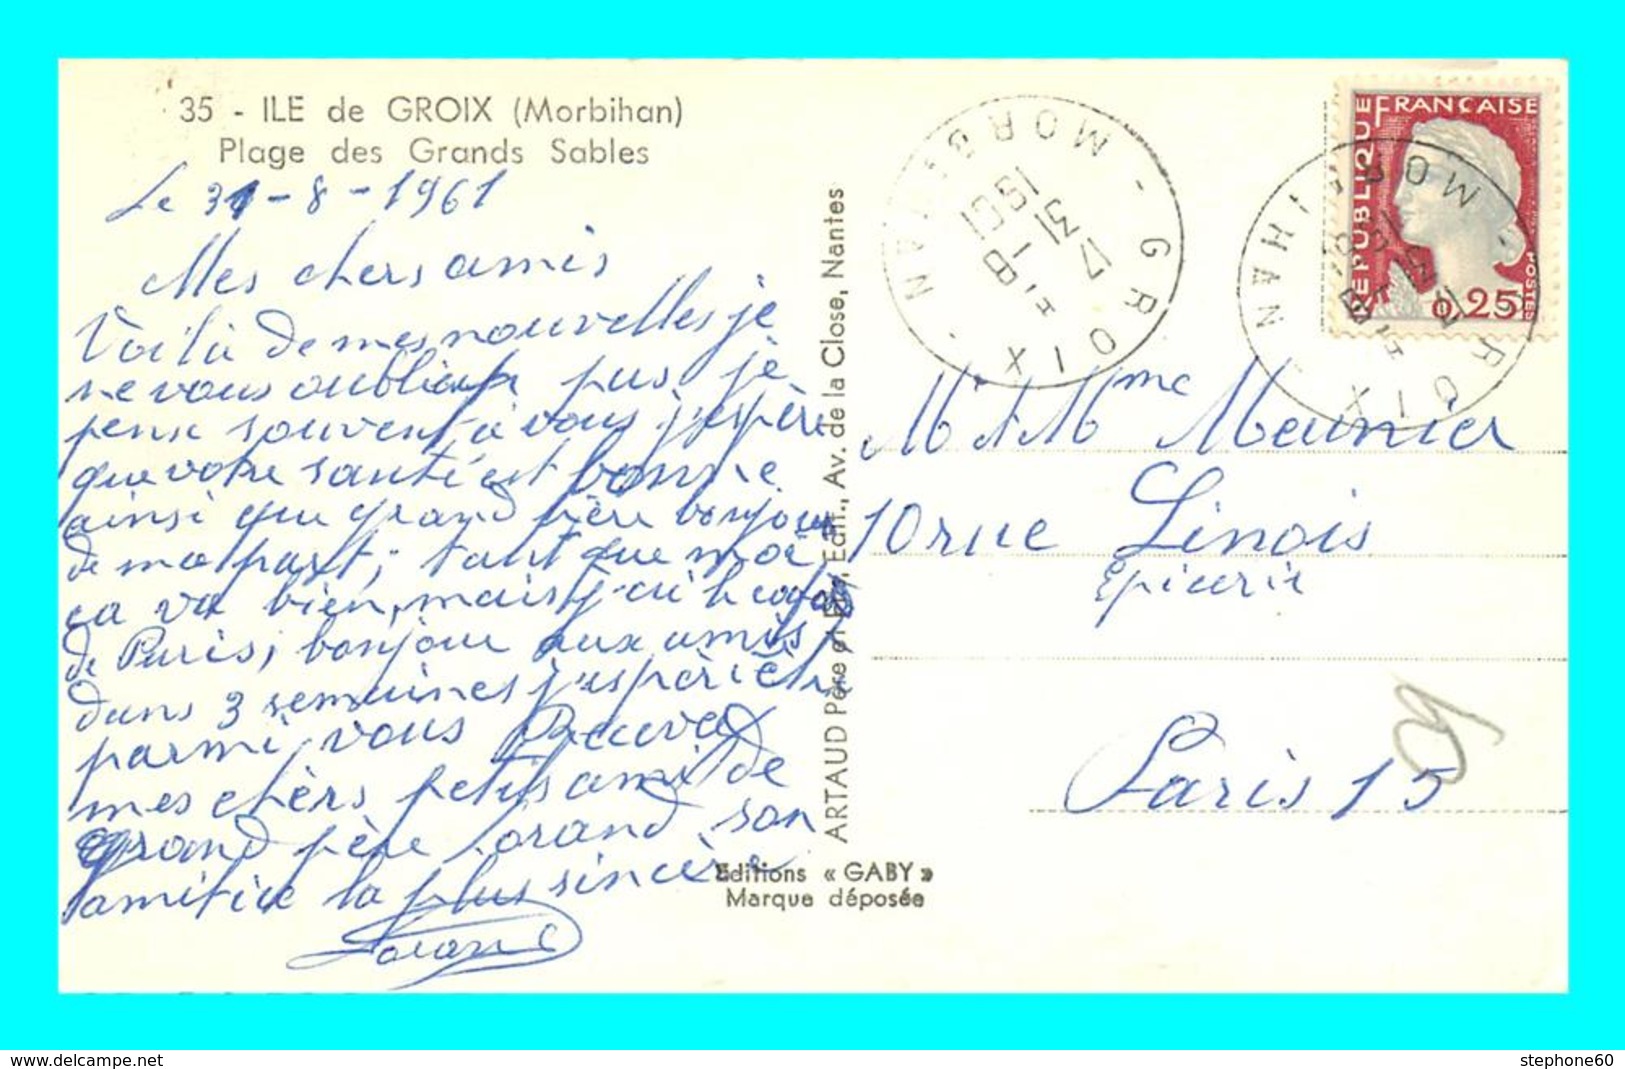 35 - ILE de GROIX (Morbihan)
Plage des Grands Sables
Le 31-8-1961
Mes chers amis
Voilà de mes nouvelles je
ne vous oublie pas je
pense souvent à vous j'espère
que votre santé est bonne
ainsi que grand père bonjour
de ma part, tant que moi
ca va bien, mais j'ai le cafard
de Paris, bonjour aux amis,
dans 3 semaines j'espère être
parmi vous Recevez
mes chèrs petits ami de
grand père son
amitiée la plus sincère
ARTAUD Père et Fils, Edit., Av. de la Close, Nantes
Editions « GABY »
Marque déposée
GROIX - MORBIHAN
17 H
31 - 8
1961
REPUBLIQUE FRANÇAISE
POSTES
0,25
GROIX - MORBIHAN
Mr & Mme Meunier
10 rue Linois
Epicerie
Paris 15
www.delcampe.net
stephone60